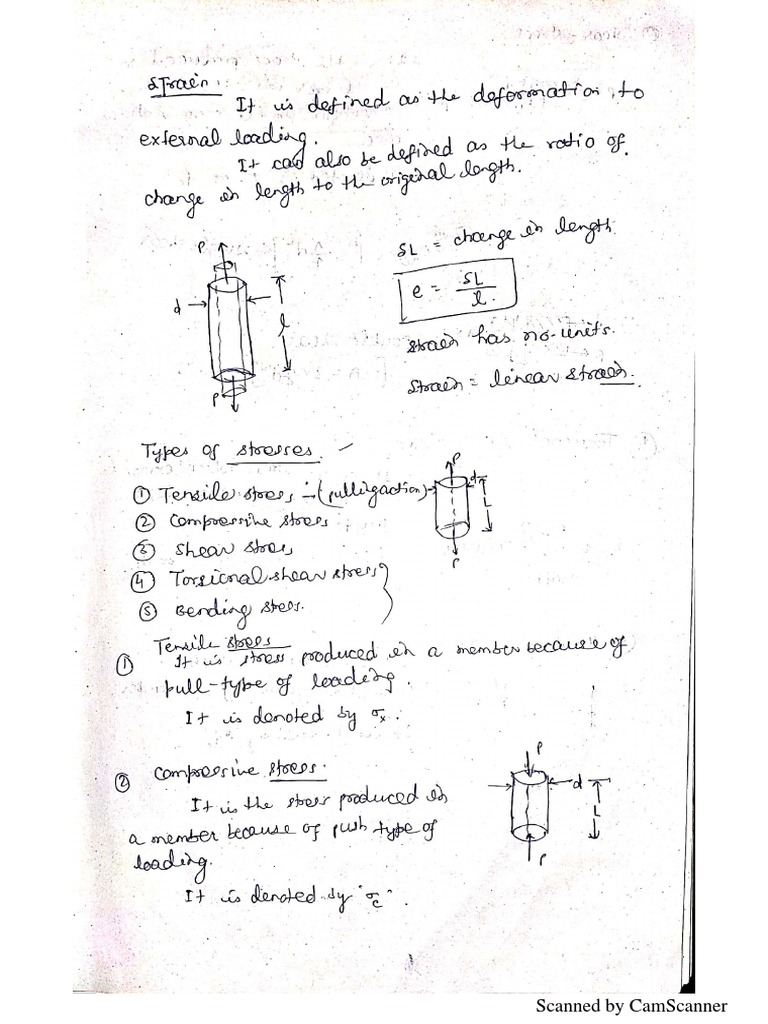 Strain.
It is defined as the deformation to
external loading.
It can also be defined as the ratio of
change in length to the original length.
P
d
l
P
δL = change in length
e = δL / l.
Strain has no-units.
Strain = linear strain.
Types of stresses.
① Tensile stress :- (pulling action)
② Compressive stress
③ Shear stress
④ Torsional shear stress
⑤ Bending stress.
P
d
L
P
① Tensile stress
It is stress produced in a member because of
pull-type of loading.
It is denoted by σx.
② Compressive stress.
It is the stress produced in
a member because of push type of
loading.
It is denoted by "σc".
P
d
L
P
Scanned by CamScanner